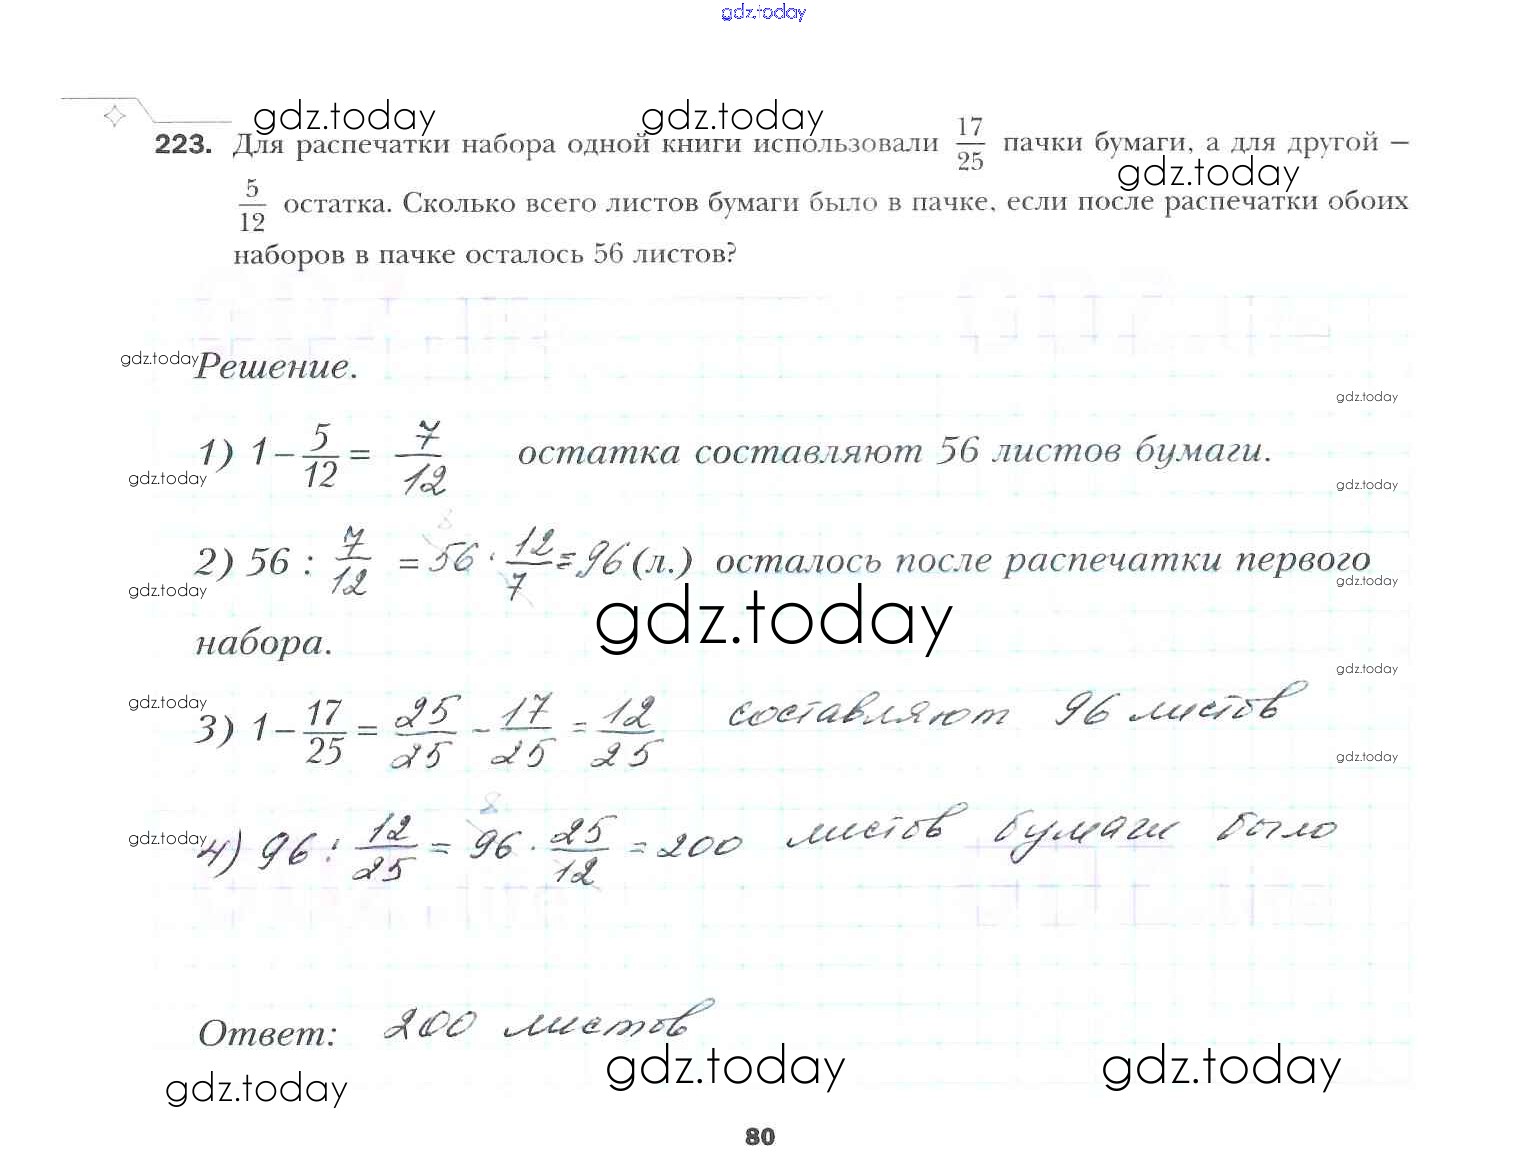 gdz.today
gdz.today gdz.today
223. Для распечатки набора одной книги использовали 17/25 пачки бумаги, а для другой –
gdz.today
5/12 остатка. Сколько всего листов бумаги было в пачке, если после распечатки обоих
наборов в пачке осталось 56 листов?
gdz.today Решение.
gdz.today
1) 1 – 5/12 = 7/12 остатка составляют 56 листов бумаги.
gdz.today gdz.today
2) 56 : 7/12 = 56 · 12/7 = 96 (л.) осталось после распечатки первого
gdz.today gdz.today gdz.today
набора.
gdz.today
gdz.today
3) 1 – 17/25 = 25/25 – 17/25 = 12/25 составляют 96 листов
gdz.today
gdz.today
4) 96 : 12/25 = 96 · 25/12 = 200 листов бумаги было
Ответ: 200 листов
gdz.today gdz.today gdz.today
80